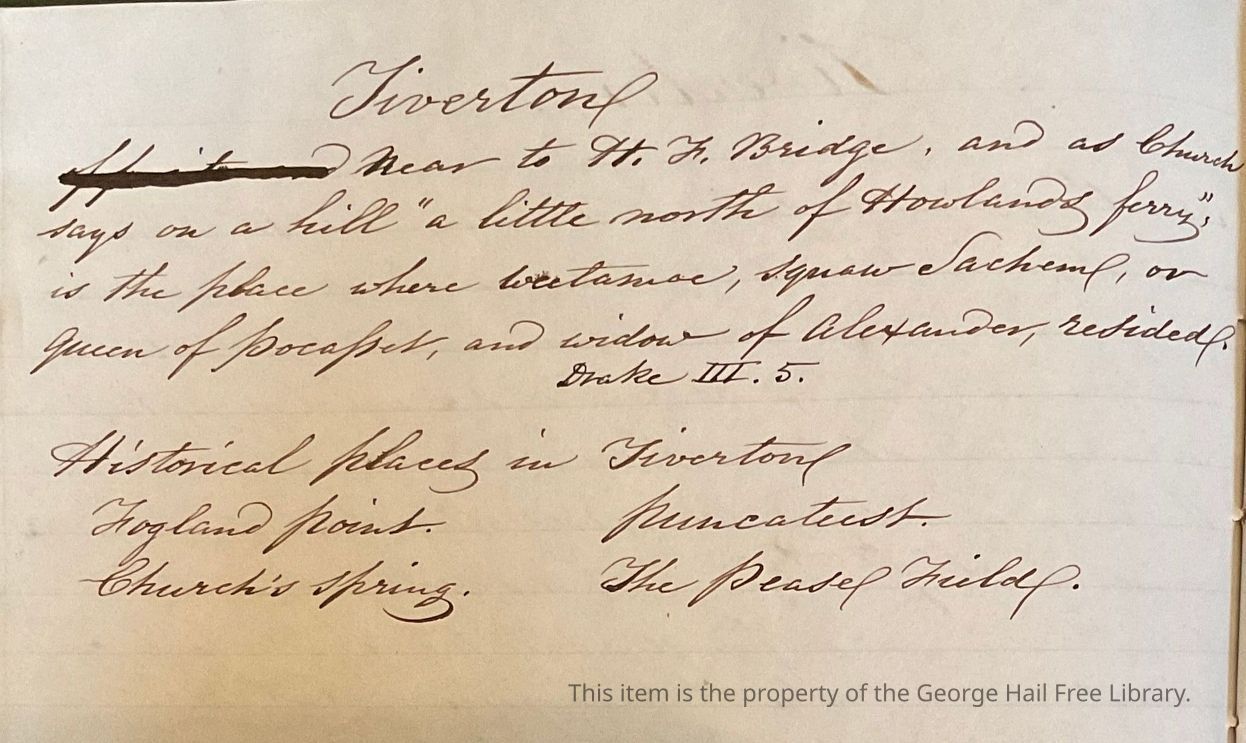 Tiverton
Near to H. F. Bridge, and as Church
says on a hill "a little north of Howlands ferry",
is the place where Weetamoe, squaw Sachem, or
queen of Pocasset, and widow of Alexander, resided.
Drake III. 5.
Historical places in Tiverton
Fogland point. Puncateest.
Church's spring. The Pease Field.
This item is the property of the George Hail Free Library.